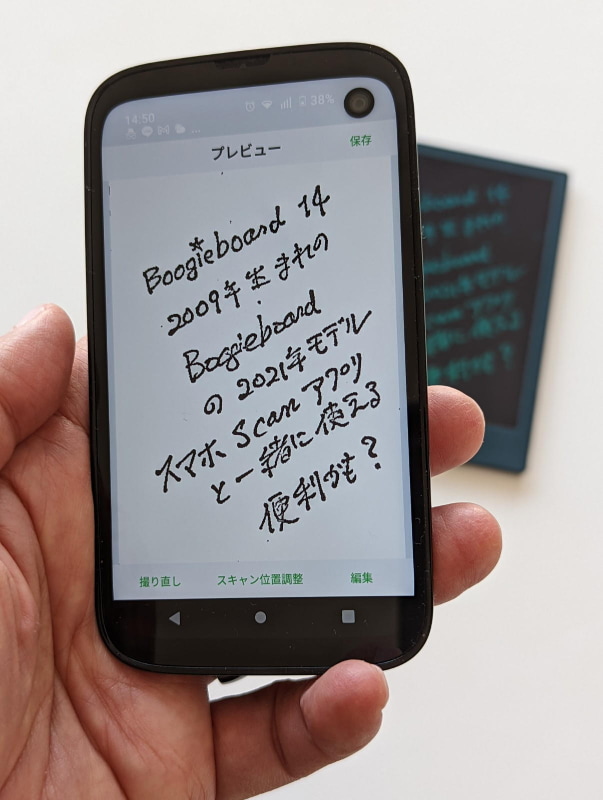 14:50
38%
プレビュー
保存
Boogieboard 14
2009年生まれの
Boogieboard
の 2021年モデル
スマホ Scan アプリ
と一緒に使える
便利かも?
撮り直し
スキャン位置調整
編集